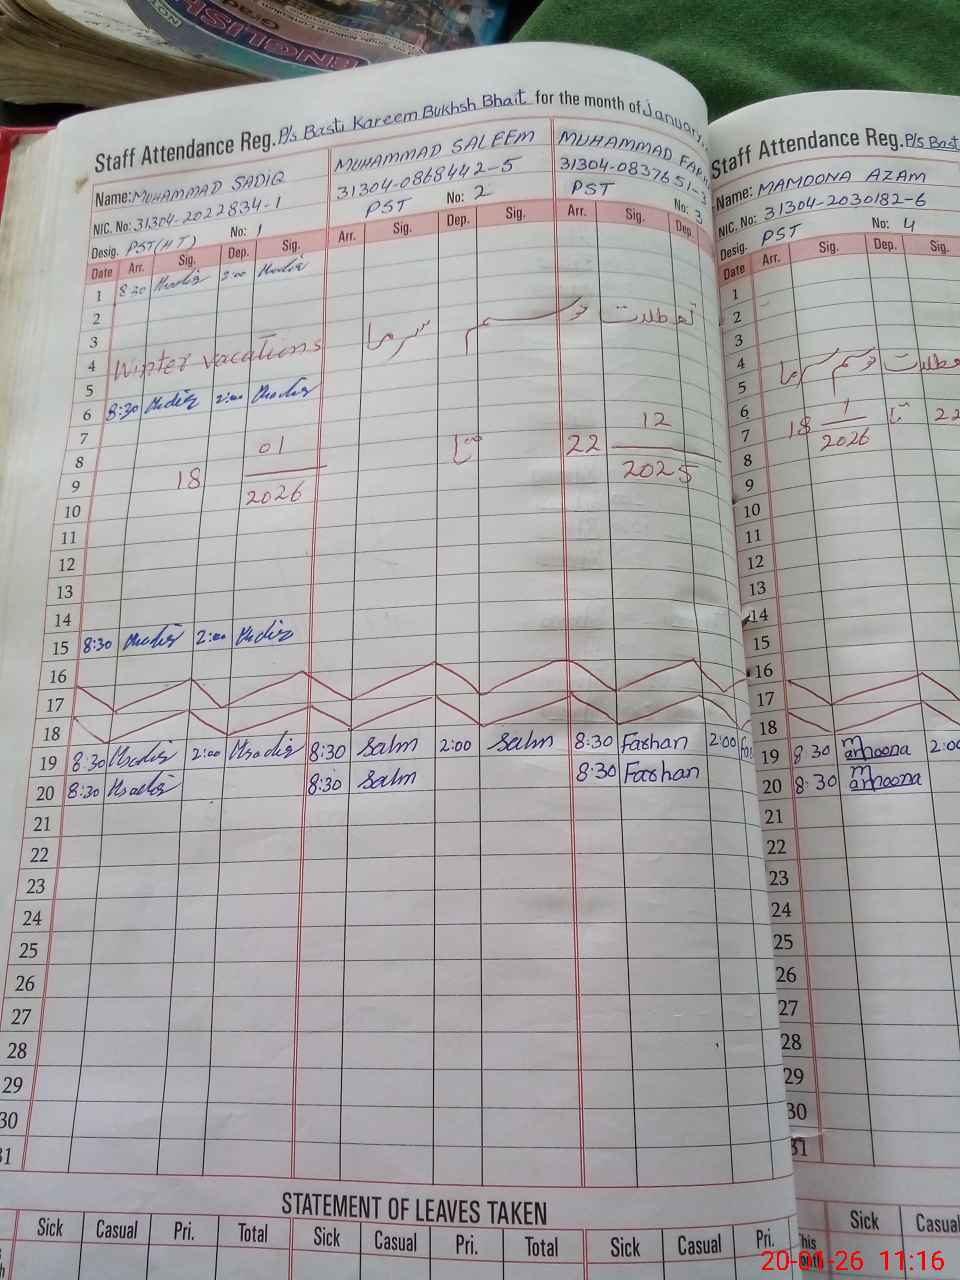 ENGLISH
Staff Attendance Reg. P/s Basti Kareem Bukhsh Bhait for the month of January
Name: MUHAMMAD SADIQ
NIC. No: 31304-2022834-1
Desig. PST(HT) No: 1
MUHAMMAD SALEEM
31304-0868442-5
PST No: 2
MUHAMMAD
31304-0837651-3
PST No: 3
Date Arr. Sig. Dep. Sig. Arr. Sig. Dep. Sig. Arr. Sig. Dep.
1 8 30 2:00
2
3
4 Winter vacations تعطیلات موسم سرما
5
6 8:30 2:00
7
8
9 18 01/2026 تا 22 12/2025
10
11
12
13
14
15 8:30 2:00
16
17
18
19 8:30 2:00 8:30 Salm 2:00 Salm 8:30 Farhan 2:00
20 8:30 8:30 Salm 8:30 Farhan
21
22
23
24
25
26
27
28
29
30
31
STATEMENT OF LEAVES TAKEN
Sick Casual Pri. Total Sick Casual Pri. Total Sick Casual Pri.
Staff Attendance Reg. P/s Bast
Name: MAMOONA AZAM
NIC. No: 31304-2030182-6
Desig. PST No: 4
Date Arr. Sig. Dep. Sig.
1
2
3
4 موسم سرما
5
6
7 18 1/2026 تا 22
8
9
10
11
12
13
14
15
16
17
18
19 8 30 2:00
20 8:30
21
22
23
24
25
26
27
28
29
30
31
Sick Casual
20-01-26 11:16